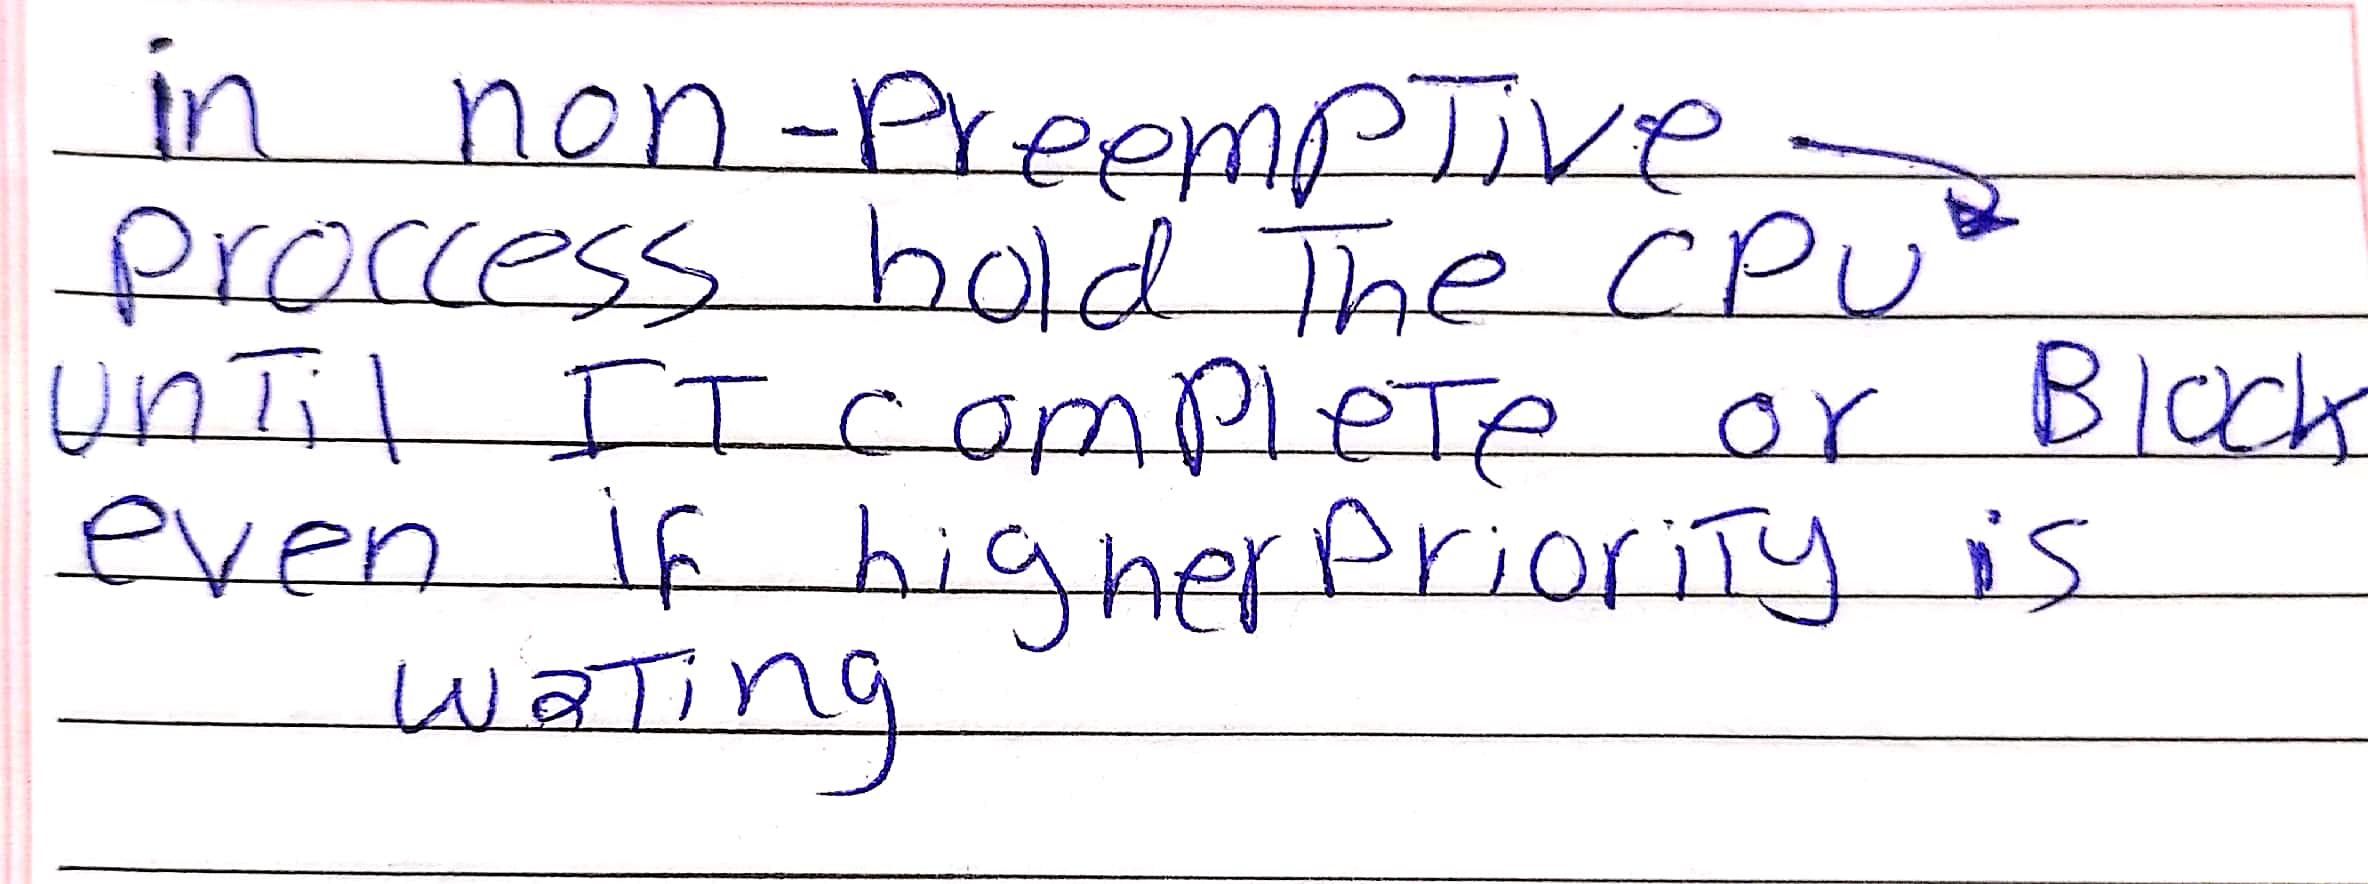 in non-PreempTive →
proccess hold The CPU
unTil IT complete or Block
even if higher PrioriTy is
waTing